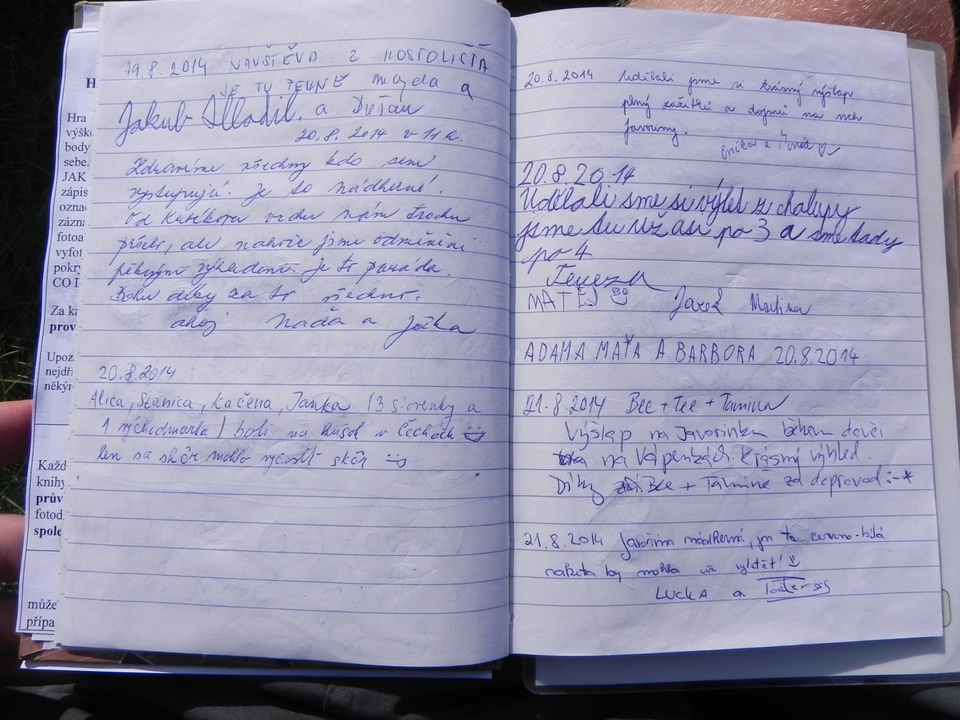 19.8.2014 NÁVŠTĚVA Z KOSTOLIŠŤA
JE TU PEKNE Magda a
Jakub a Dušan
20.8.2014 v 11 h.
Zdravíme všechny kdo sem
vystupují. Je to nádherné.
Od vrchu nám trochu
pršelo, ale nahoře jsme odměněni
pěkným výhledem je to paráda.
díky za to všechno.
ahoj Naďa a Jožka
20.8.2014
Alica, Stanica, Kačena, Janka (3 slovenky a
1 východniarka) boli na kúsok v Čechách
len sa skôr mohlo vyčistiť skôr
20.8.2014 Udělali jsme si krásný výstup
plný zážitků a dojmů na vrch
Javořiny.
a
20.8.2014
Udělali sme si výlet z chalupy
jsme tu už asi po 3 a sme tady
po 4
Tereza
MATĚJ Jaroš Martina
ADAMA MAŤA A BARBORA 20.8.2014
21.8.2014 Bee + Tee + Tamina
Výstup na Javorinku během dovči
na Vápenkách. Krásný výhled.
Díky Bee + Tamině za doprovod :-*
21.8.2014 Javořina nádherná, jen ta červeno-bílá
raketa by mohla už vyletět!
LUCKA a
H
Hra
výšk
body
sebe.
JAK
zápis
označ
zázna
fotoa
vyfot
pokry
CO I
Za ka
prov
Upoz
nejdř
někýr
Každ
knihy
prův
fotod
spole
může
přípa